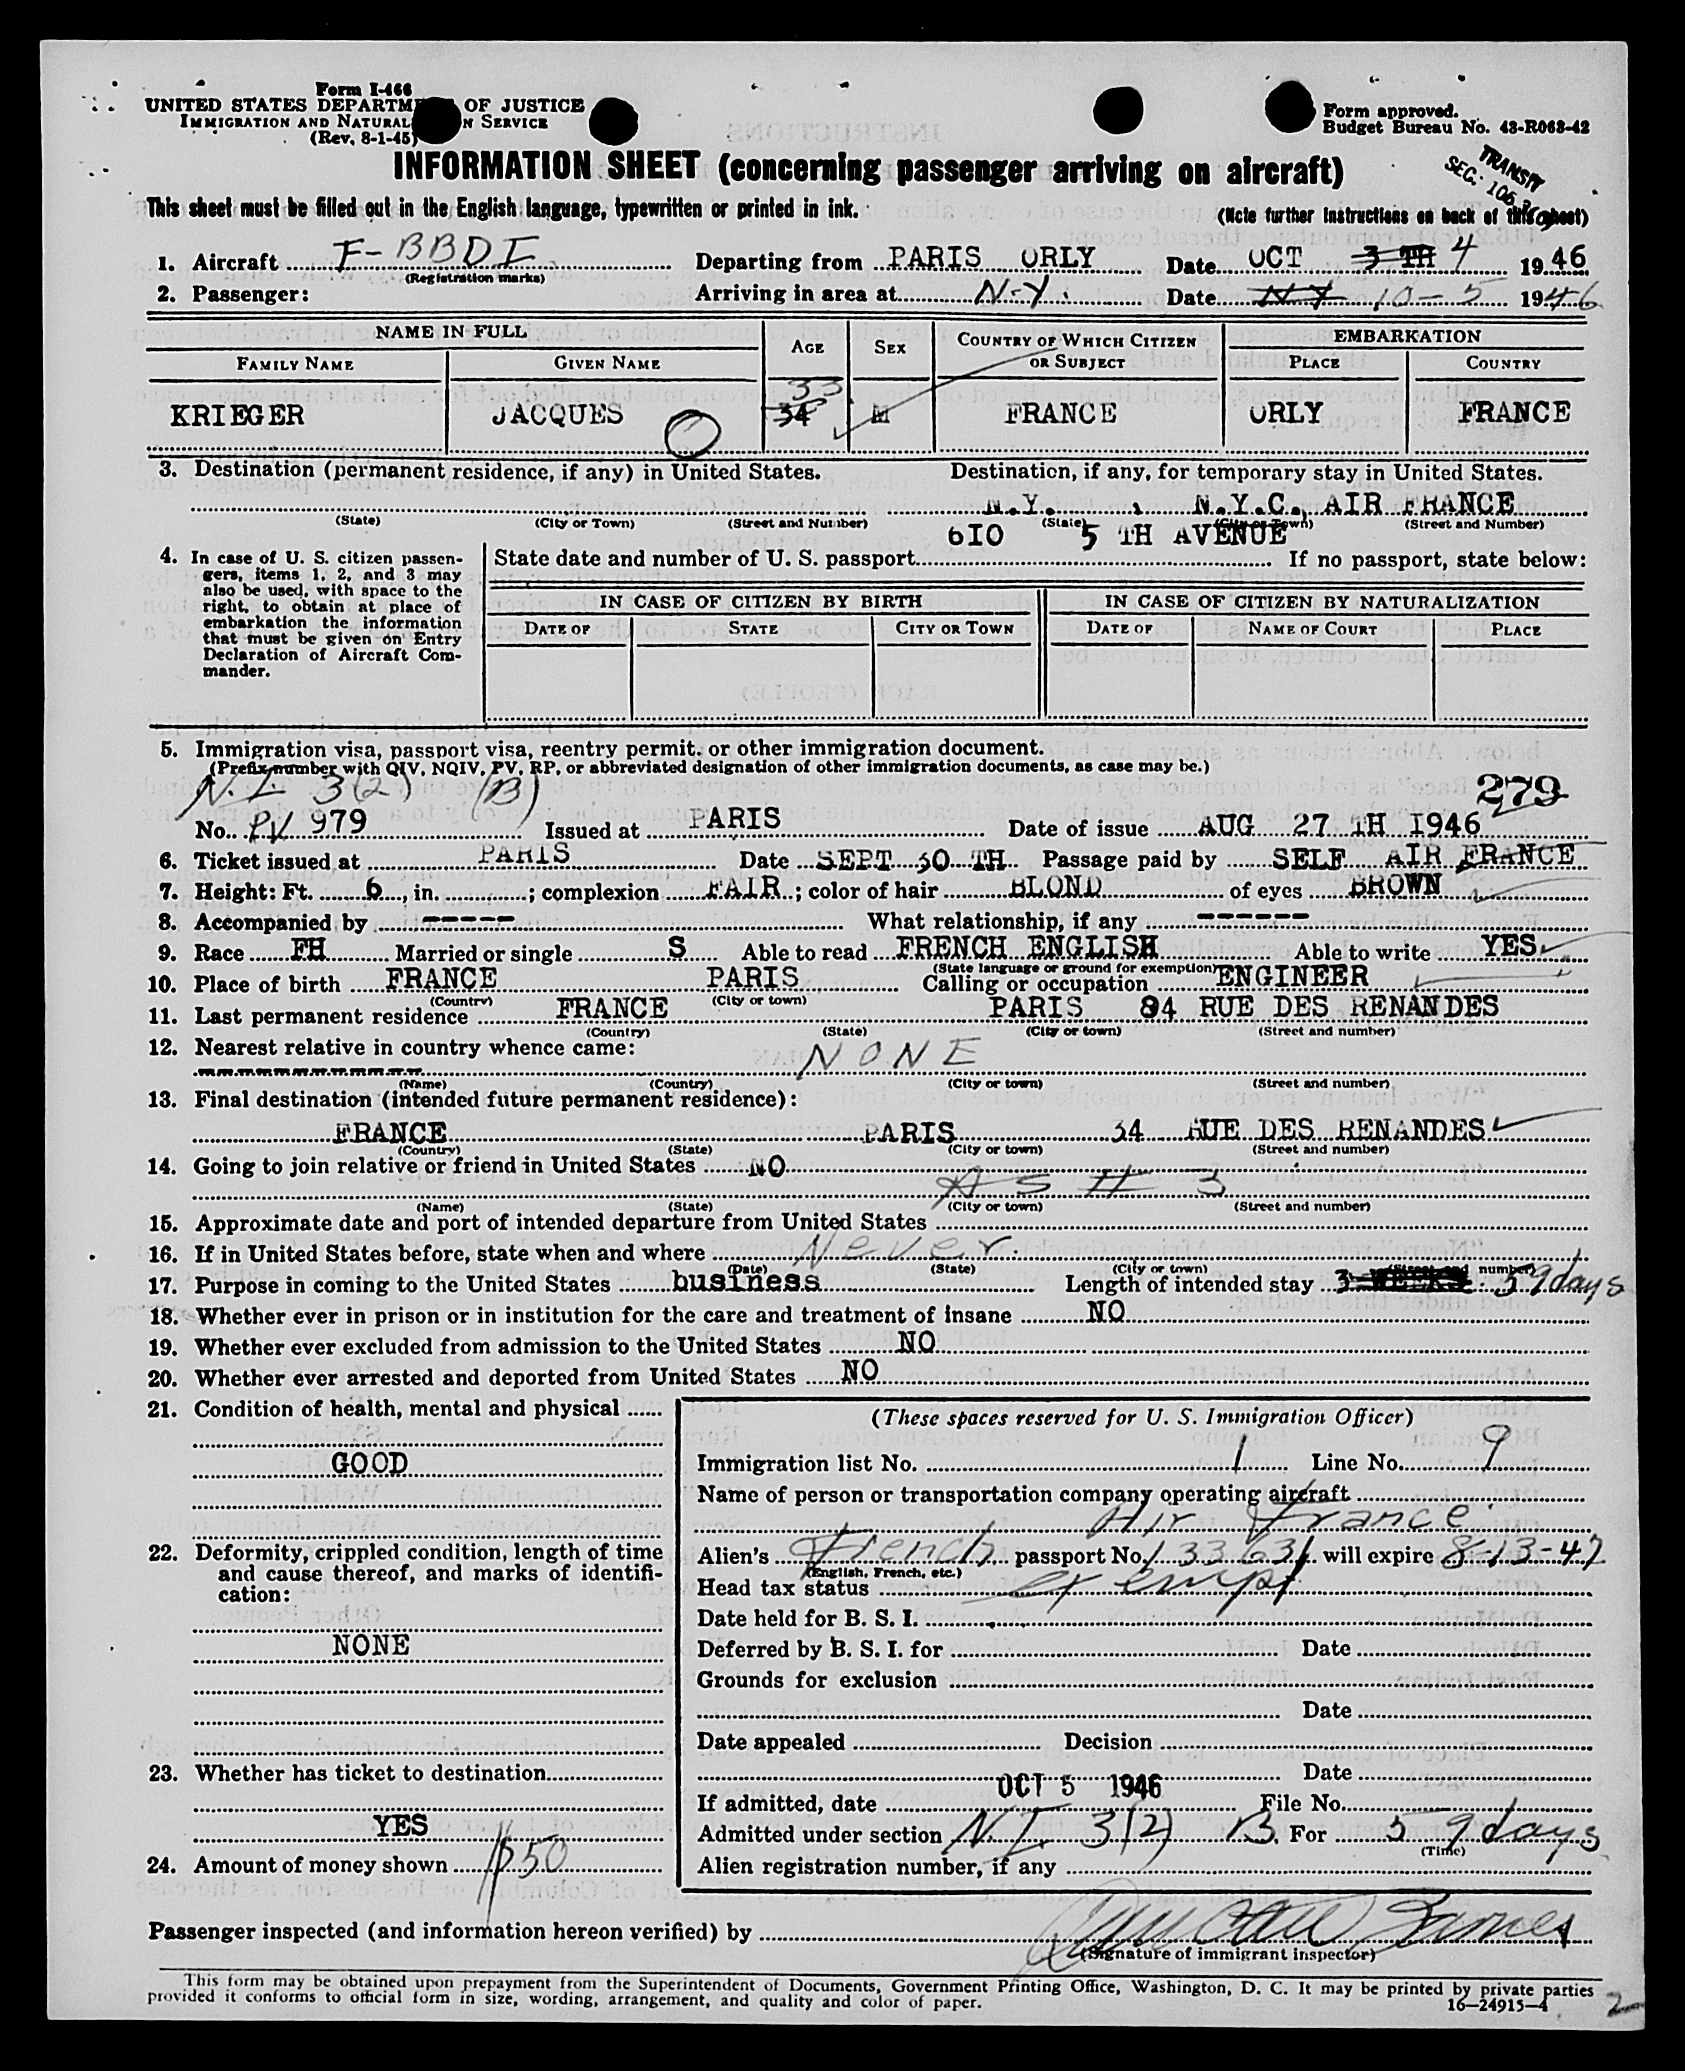 Form I-466
UNITED STATES DEPARTM OF JUSTICE
IMMIGRATION AND NATURAL N SERVICE
(Rev. 8-1-45)
Form approved.
Budget Bureau No. 43-R063-42
INFORMATION SHEET (concerning passenger arriving on aircraft)
TRANSIT
SEC. 106.3
This sheet must be filled out in the English language, typewritten or printed in ink.
(Note further instructions on back of this sheet)
1. Aircraft F-BBDI Departing from PARIS ORLY Date OCT 3 TH 4 1946
(Registration marks)
2. Passenger: Arriving in area at N.Y. Date NY 10-5 1946
NAME IN FULL AGE SEX COUNTRY OF WHICH CITIZEN OR SUBJECT EMBARKATION
FAMILY NAME GIVEN NAME PLACE COUNTRY
33
KRIEGER JACQUES 34 M FRANCE ORLY FRANCE
3. Destination (permanent residence, if any) in United States. Destination, if any, for temporary stay in United States.
N.Y. , N.Y.C., AIR FRANCE
(State) (City or Town) (Street and Number) (State) (City or Town) (Street and Number)
610 5 TH AVENUE
4. In case of U. S. citizen passengers, items 1, 2, and 3 may also be used, with space to the right, to obtain at place of embarkation the information that must be given on Entry Declaration of Aircraft Commander.
State date and number of U. S. passport If no passport, state below:
IN CASE OF CITIZEN BY BIRTH IN CASE OF CITIZEN BY NATURALIZATION
DATE OF STATE CITY OR TOWN DATE OF NAME OF COURT PLACE
5. Immigration visa, passport visa, reentry permit, or other immigration document.
(Prefix number with QIV, NQIV, PV, RP, or abbreviated designation of other immigration documents, as case may be.)
N.I. 3(2) (B) 279
No. PV 979 Issued at PARIS Date of issue AUG 27 TH 1946
6. Ticket issued at PARIS Date SEPT 30 TH Passage paid by SELF AIR FRANCE
7. Height: Ft. 6, in. ; complexion FAIR ; color of hair BLOND of eyes BROWN
8. Accompanied by ----- What relationship, if any ------
9. Race FH Married or single S Able to read FRENCH ENGLISH Able to write YES
(State language or ground for exemption)
10. Place of birth FRANCE PARIS Calling or occupation ENGINEER
(Country) (City or town)
11. Last permanent residence FRANCE PARIS 84 RUE DES RENANDES
(Country) (State) (City or town) (Street and number)
12. Nearest relative in country whence came:
NONE
(Name) (Country) (City or town) (Street and number)
13. Final destination (intended future permanent residence):
FRANCE PARIS 34 RUE DES RENANDES
(Country) (State) (City or town) (Street and number)
14. Going to join relative or friend in United States NO
AS # 3
(Name) (State) (City or town) (Street and number)
15. Approximate date and port of intended departure from United States
16. If in United States before, state when and where Never
(Date) (State) (City or town) (Street and number)
17. Purpose in coming to the United States business Length of intended stay 3 WEEKS 59 days
18. Whether ever in prison or in institution for the care and treatment of insane NO
19. Whether ever excluded from admission to the United States NO
20. Whether ever arrested and deported from United States NO
21. Condition of health, mental and physical
GOOD
22. Deformity, crippled condition, length of time and cause thereof, and marks of identification:
NONE
23. Whether has ticket to destination
YES
24. Amount of money shown $50
(These spaces reserved for U. S. Immigration Officer)
Immigration list No. 1 Line No. 9
Name of person or transportation company operating aircraft
Air France
Alien's French passport No. 133631 will expire 8-13-47
(English, French, etc.)
Head tax status exempt
Date held for B. S. I.
Deferred by B. S. I. for Date
Grounds for exclusion
Date
Date appealed Decision
Date
If admitted, date OCT 5 1946 File No.
Admitted under section N.I. 3(2) B. For 59 days
(Time)
Alien registration number, if any
Passenger inspected (and information hereon verified) by
(Signature of immigrant inspector)
This form may be obtained upon prepayment from the Superintendent of Documents, Government Printing Office, Washington, D. C. It may be printed by private parties
provided it conforms to official form in size, wording, arrangement, and quality and color of paper.
16—24915-4
2